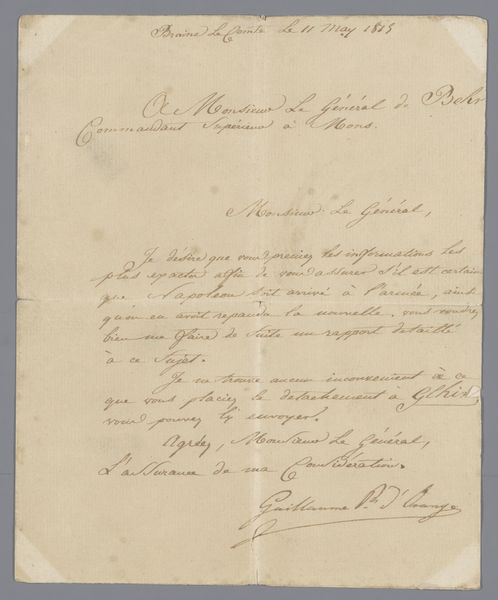 Braine Le Comte Le 11 May 1815
A Monsieur Le Général de Behr
Commandant Supérieur à Mons.
Monsieur Le Général,
Je désire que vous preniez les informations les
plus exactes affin de vous assurer s'il est certain
que Napoleon soit arrivé à l'armée, ainsi
qu'on en avoit repandu la nouvelle. vous voudrez
bien me faire de suite un rapport detaillé
à ce sujet.
Je ne trouve aucun inconvenient à ce
que vous placiez le detachement a Ghlin,
vous pouvez l'y envoyer.
Agréez, Monsieur Le Général,
L'assurance de ma Considération.
Guillaume Pce d'Orange